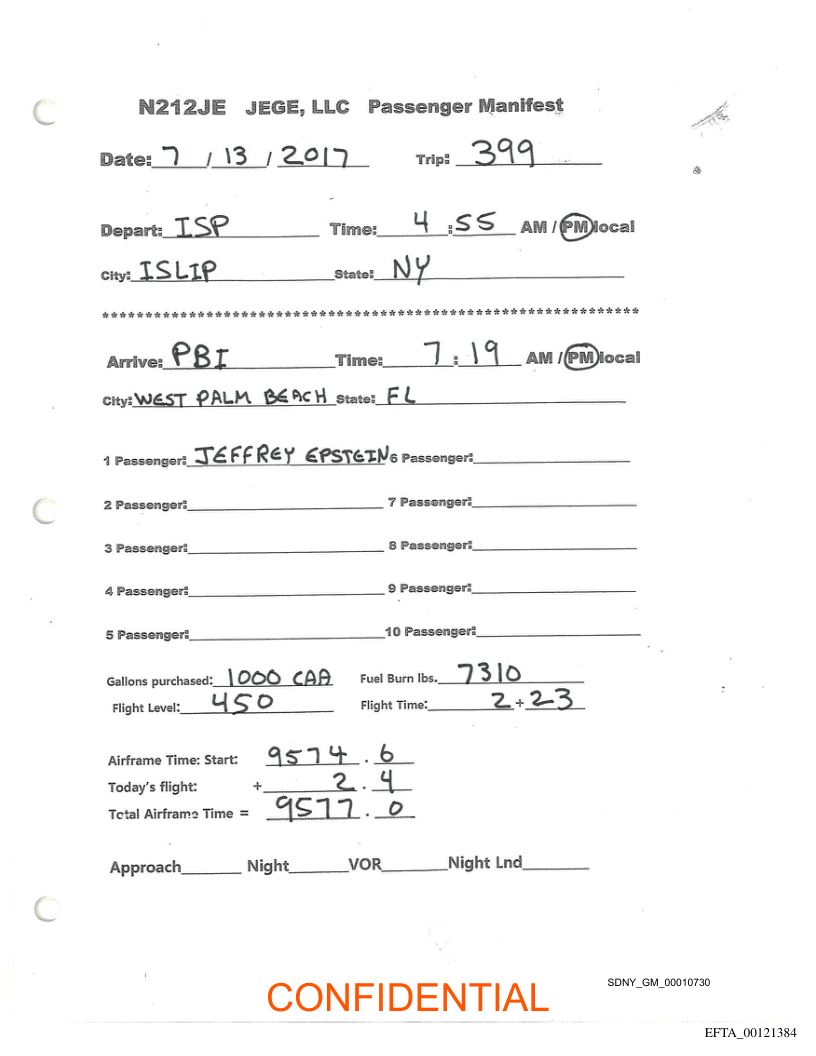 N212JE JEGE, LLC Passenger Manifest
Date: 7 / 13 / 2017 Trip: 399
Depart: ISP Time: 4 :55 AM / PM local
City: ISLIP State: NY
***************************************************************
Arrive: PBI Time: 7 : 19 AM / PM local
City: WEST PALM BEACH State: FL
1 Passenger: JEFFREY EPSTEIN 6 Passenger:
2 Passenger: 7 Passenger:
3 Passenger: 8 Passenger:
4 Passenger: 9 Passenger:
5 Passenger: 10 Passenger:
Gallons purchased: 1000 CAA Fuel Burn lbs. 7310
Flight Level: 450 Flight Time: 2 + 23
Airframe Time: Start: 9574 . 6
Today's flight: + 2 . 4
Total Airframe Time = 9577 . 0
Approach Night VOR Night Lnd
SDNY_GM_00010730
CONFIDENTIAL
EFTA_00121384